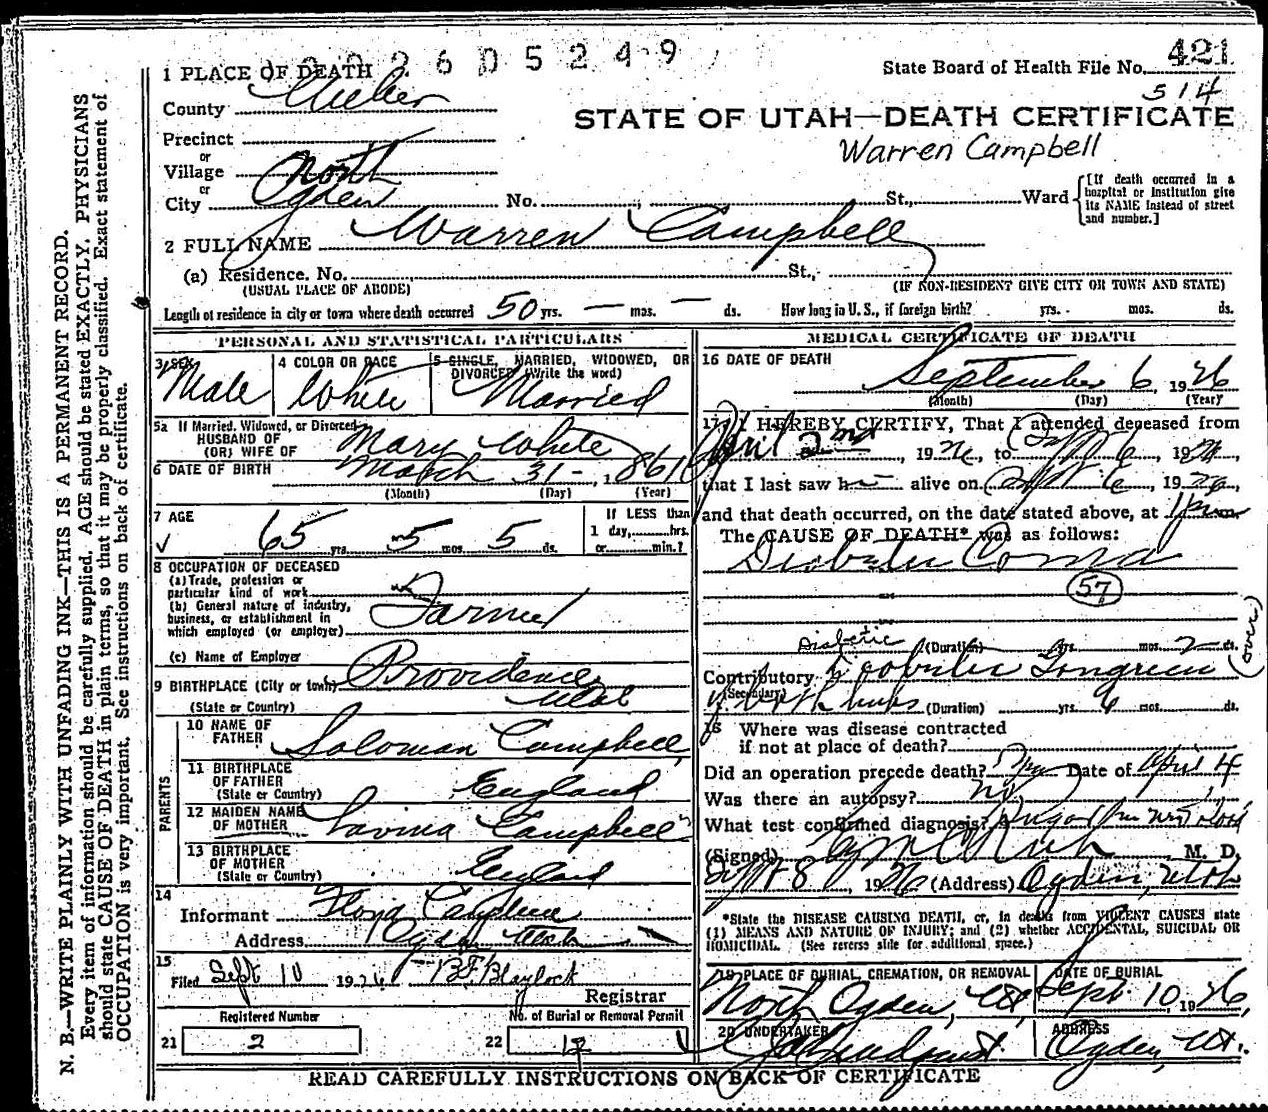 N. B.—WRITE PLAINLY WITH UNFADING INK—THIS IS A PERMANENT RECORD.
Every item of information should be carefully supplied. AGE should be stated EXACTLY. PHYSICIANS
should state CAUSE OF DEATH in plain terms, so that it may be properly classified. Exact statement of
OCCUPATION is very important. See instructions on back of certificate.
State Board of Health File No. 421
514
STATE OF UTAH—DEATH CERTIFICATE
Warren Campbell
1 PLACE OF DEATH
County Weber
Precinct
or
Village North
or
City Ogden No. St., Ward
[If death occurred in a
hospital or institution give
its NAME instead of street
and number.]
2 FULL NAME Warren Campbell
(a) Residence. No. St.,
(USUAL PLACE OF ABODE) (IF NON-RESIDENT GIVE CITY OR TOWN AND STATE)
Length of residence in city or town where death occurred 50 yrs. — mos. — ds. How long in U. S., if foreign birth? yrs. mos. ds.
PERSONAL AND STATISTICAL PARTICULARS
3 SEX
Male
4 COLOR OR RACE
White
5 SINGLE, MARRIED, WIDOWED, OR
DIVORCED (Write the word)
Married
5a If Married, Widowed, or Divorced
HUSBAND OF
(OR) WIFE OF Mary White
6 DATE OF BIRTH March 31 - , 1861
(Month) (Day) (Year)
7 AGE
65 yrs. 5 mos. 5 ds.
If LESS than
1 day, hrs.
or min.?
8 OCCUPATION OF DECEASED
(a) Trade, profession or
particular kind of work
(b) General nature of industry,
business, or establishment in
which employed (or employer) Farmer
(c) Name of Employer
9 BIRTHPLACE (City or town) Providence
(State or Country) Utah
PARENTS
10 NAME OF
FATHER Soloman Campbell
11 BIRTHPLACE
OF FATHER
(State or Country) England
12 MAIDEN NAME
OF MOTHER Lavina Campbell
13 BIRTHPLACE
OF MOTHER
(State or Country) England
14
Informant Floyd Campbell
Address Ogden Utah
15
Filed Sept 10 1926 B.F. Blaylock
Registrar
Registered Number
21 2
No. of Burial or Removal Permit
22 17
MEDICAL CERTIFICATE OF DEATH
16 DATE OF DEATH
September 6 1926
(Month) (Day) (Year)
17 I HEREBY CERTIFY, That I attended deceased from
April 2nd, 1926, to Sept 6, 1926,
that I last saw h alive on Sept 6, 1926,
and that death occurred, on the date stated above, at 1 pm
The CAUSE OF DEATH* was as follows:
Diabetic Coma
57
Diabetic (Duration) yrs. mos. 2 ds.
(over)
Contributory Diabetic Gangrene
(Secondary) of both limbs (Duration) yrs. mos. ds.
18 Where was disease contracted
if not at place of death?
Did an operation precede death? Yes Date of April 4
Was there an autopsy? No
What test confirmed diagnosis? Sugar
(Signed) M. D.
Sept 8, 1926 (Address) Ogden, Utah
*State the DISEASE CAUSING DEATH, or, in deaths from VIOLENT CAUSES state
(1) MEANS AND NATURE OF INJURY; and (2) whether ACCIDENTAL, SUICIDAL OR
HOMICIDAL. (See reverse side for additional space.)
19 PLACE OF BURIAL, CREMATION, OR REMOVAL
North Ogden, Ut.
DATE OF BURIAL
Sept 10, 1926
20 UNDERTAKER
ADDRESS
Ogden, Ut.
READ CAREFULLY INSTRUCTIONS ON BACK OF CERTIFICATE